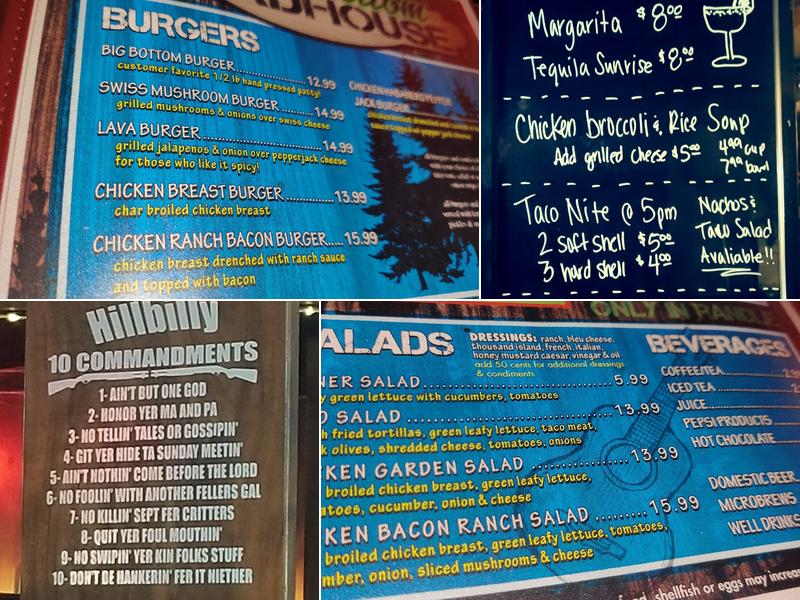 BURGERS
BIG BOTTOM BURGER 12.99
customer favorite 1/2 lb hand pressed patty!
SWISS MUSHROOM BURGER 14.99
grilled mushrooms & onions over swiss cheese
LAVA BURGER 14.99
grilled jalapenos & onion over pepperjack cheese
for those who like it spicy!
CHICKEN BREAST BURGER 13.99
char broiled chicken breast
CHICKEN RANCH BACON BURGER..... 15.99
chicken breast drenched with ranch sauce
and topped with bacon
CHICKEN HABANERO PEPPER
JACK BURGER
Margarita $8.00
Tequila Sunrise $8.00
Chicken broccoli & Rice Soup
Add grilled cheese $5.00 4.99 cup
7.99 bowl
Taco Nite @ 5pm
2 soft shell $5.00
3 hard shell $4.00
Nachos &
Taco Salad
Avaliable!!
Hillbilly
10 COMMANDMENTS
1- AIN'T BUT ONE GOD
2- HONOR YER MA AND PA
3- NO TELLIN' TALES OR GOSSIPIN'
4- GIT YER HIDE TA SUNDAY MEETIN'
5- AIN'T NOTHIN' COME BEFORE THE LORD
6- NO FOOLIN' WITH ANOTHER FELLERS GAL
7- NO KILLIN' SEPT FER CRITTERS
8- QUIT YER FOUL MOUTHIN'
9- NO SWIPIN' YER KIN FOLKS STUFF
10- DON'T BE HANKERIN' FER IT NIETHER
ONLY IN
ALADS
DRESSINGS: ranch, bleu cheese,
thousand island, french, italian,
honey mustard caesar, vinegar & oil
add 50 cents for additional dressings
& condiments
NER SALAD 5.99
y green lettuce with cucumbers, tomatoes
O SALAD 13.99
h fried tortillas, green leafy lettuce, taco meat,
k olives, shredded cheese, tomatoes, onions
KEN GARDEN SALAD 13.99
broiled chicken breast, green leafy lettuce,
atoes, cucumber, onion & cheese
KEN BACON RANCH SALAD 15.99
broiled chicken breast, green leafy lettuce, tomatoes,
mber, onion, sliced mushrooms & cheese
BEVERAGES
COFFEE/TEA
ICED TEA
JUICE
PEPSI PRODUCTS
HOT CHOCOLATE
DOMESTIC BEER
MICROBREWS
WELL DRINKS
, shellfish or eggs may increas